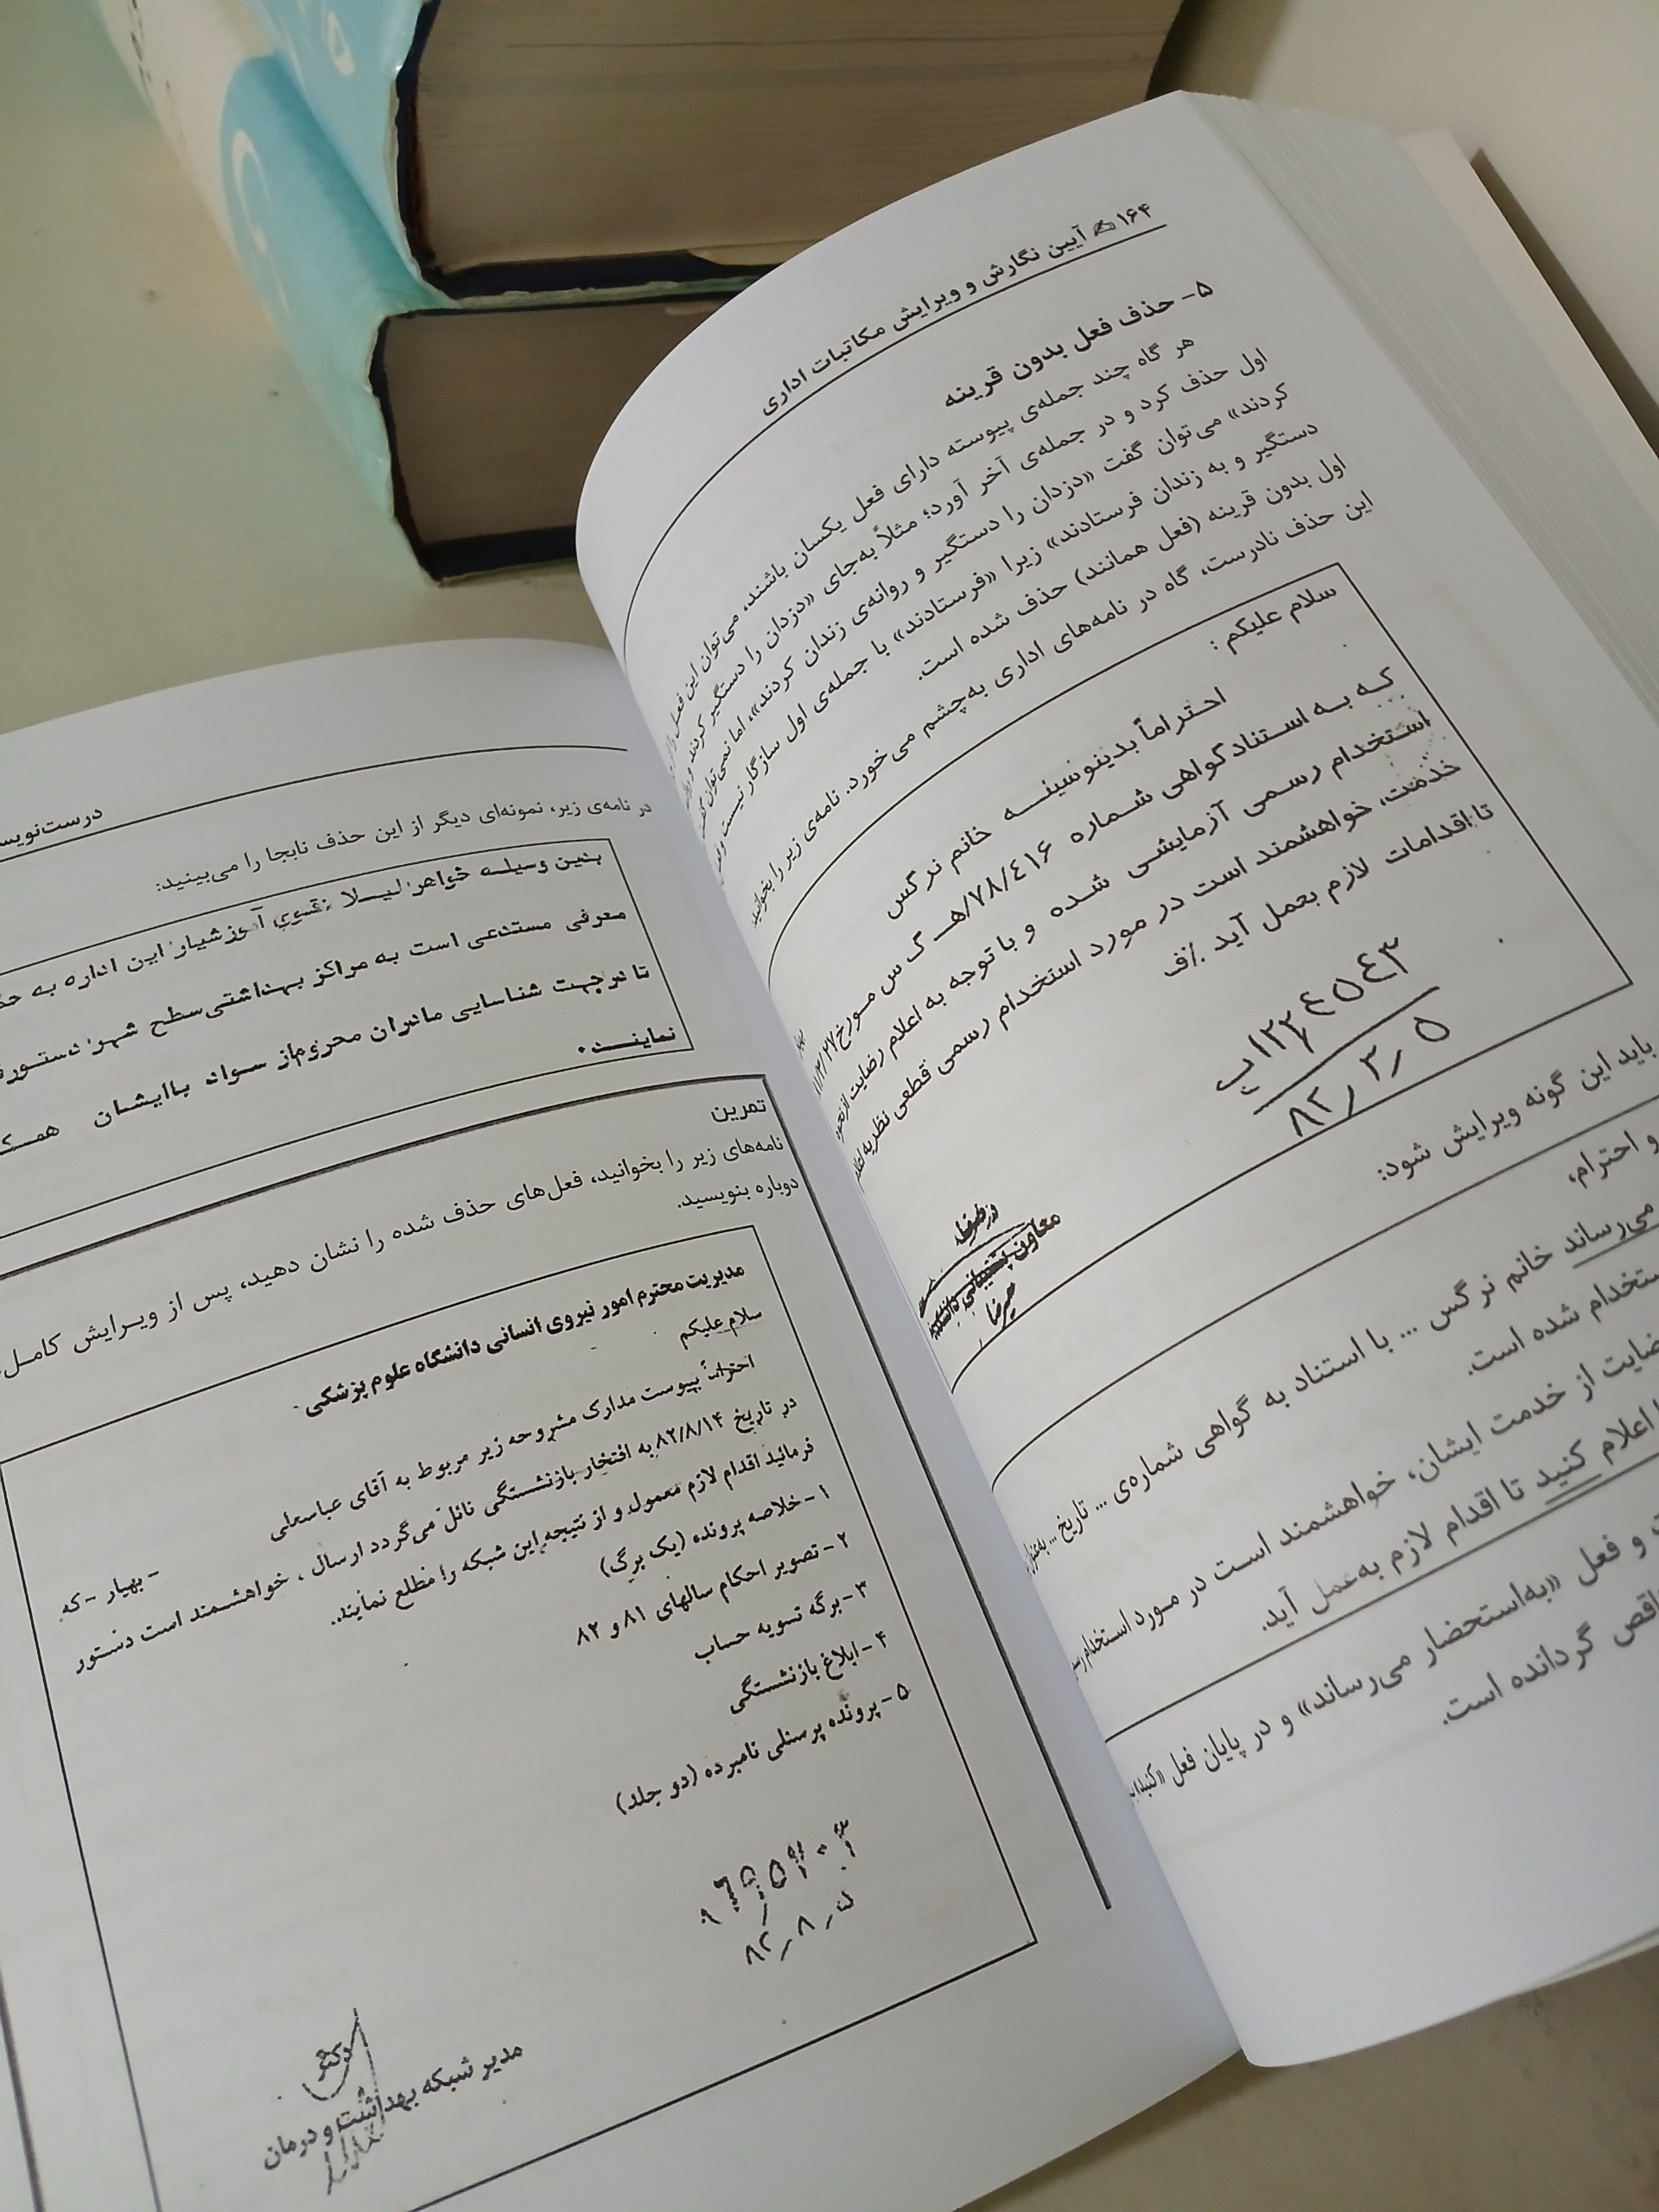 ۱۶۴ آیین نگارش و ویرایش مکاتبات اداری
۵- حذف فعل بدون قرینه
هر گاه چند جمله‌ی پیوسته دارای فعل یکسان باشند، می‌توان این فعل را از
اول حذف کرد و در جمله‌ی آخر آورد؛ مثلاً به‌جای «دزدان را دستگیر کردند و
کردند» می‌توان گفت «دزدان را دستگیر و روانه‌ی زندان کردند»، اما نمی‌توان
دستگیر و به زندان فرستادند» زیرا «فرستادند» با جمله‌ی اول سازگار نیست و
اول بدون قرینه (فعل همانند) حذف شده است.
این حذف نادرست، گاه در نامه‌های اداری به‌چشم می‌خورد. نامه‌ی زیر را بخوانید
سلام علیکم :
احتراماً بدینوسیله خانم نرگس
که به استناد گواهی شماره ۷۸/٤۱۶/هـ گ س مورخ
استخدام رسمی آزمایشی شده و با توجه به اعلام رضایت از
خدمت، خواهشمند است در مورد استخدام رسمی قطعی نظریه
تا اقدامات لازم بعمل آید ٪ف
۸۲٫۳٫۵
معاون پشتیبانی
باید این گونه ویرایش شود:
و احترام،
می‌رساند خانم نرگس ... با استناد به گواهی شماره‌ی ... تاریخ ...
استخدام شده است.
رضایت از خدمت ایشان، خواهشمند است در مورد استخدام
اعلام کنید تا اقدام لازم به‌عمل آید.
و فعل «به‌استحضار می‌رساند» و در پایان فعل «کنید»
ناقص گردانده است.
در نامه‌ی زیر، نمونه‌ای دیگر از این حذف نابجا را می‌بینید:
بدین وسیله خواهر لیلا نقوی آموزشیار این اداره به
معرفی مستدعی است به مراکز بهداشتی سطح شهر دستور
تا در جهت شناسایی مادران محروم از سواد با ایشان
نمایند.
تمرین
نامه‌های زیر را بخوانید، فعل‌های حذف شده را نشان دهید، پس از ویرایش کامل
دوباره بنویسید.
مدیریت محترم امور نیروی انسانی دانشگاه علوم پزشکی
سلام علیکم
احتراماً پیوست مدارک مشروحه زیر مربوط به آقای عباسعلی - بهیار - که
در تاریخ ۸۲/۸/۱۴ به افتخار بازنشستگی نائل می‌گردد ارسال ، خواهشمند است دستور
فرمائید اقدام لازم معمول و از نتیجه این شبکه را مطلع نمایند.
۱- خلاصه پرونده (یک برگ)
۲- تصویر احکام سالهای ۸۱ و ۸۲
۳- برگه تسویه حساب
۴- ابلاغ بازنشستگی
۵- پرونده پرسنلی نامبرده (دو جلد)
۸۲٫۸٫۵
دکتر
مدیر شبکه بهداشت و درمان